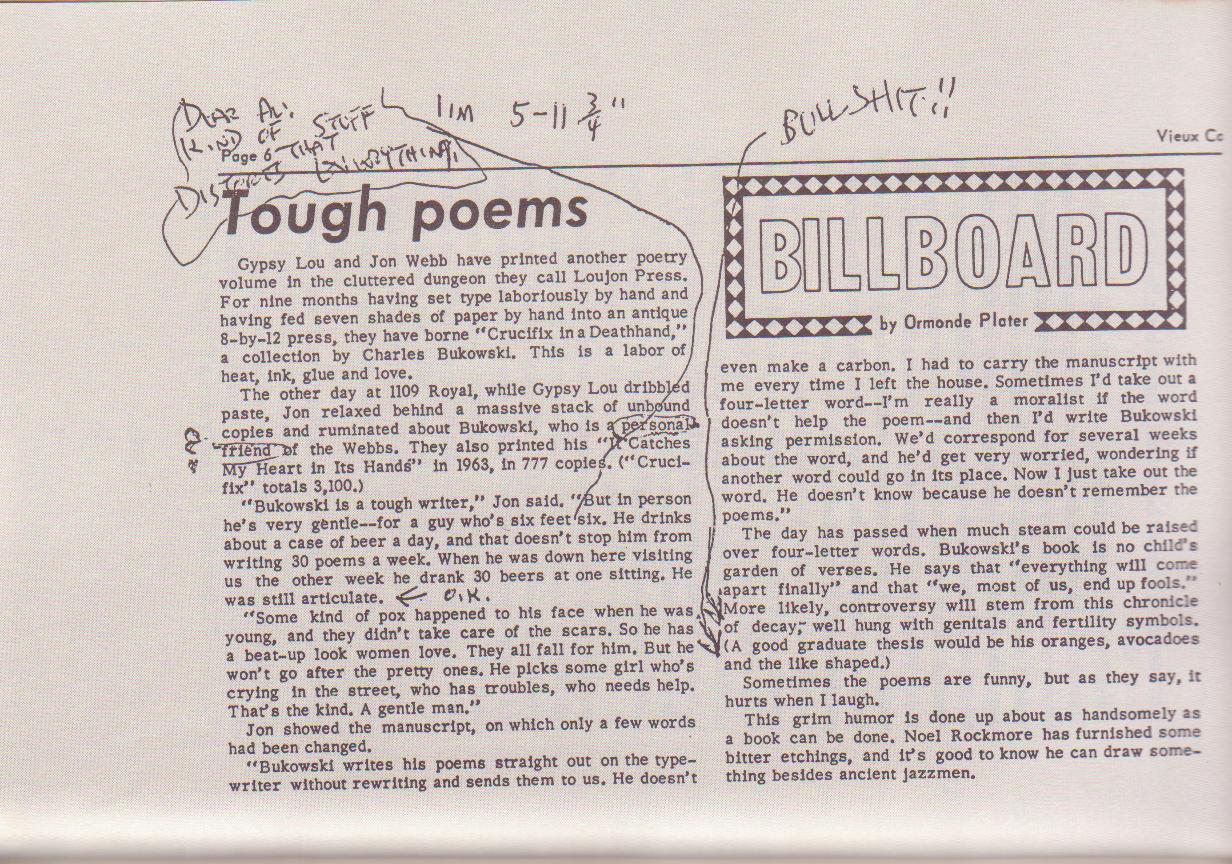 DEAR AL:
KIND OF STUFF
THAT
DISTORTS EVERYTHING.
I'M 5-11 3/4"
BULLSHIT!!
Page 6
Vieux Ca
Tough poems
Gypsy Lou and Jon Webb have printed another poetry
volume in the cluttered dungeon they call Loujon Press.
For nine months having set type laboriously by hand and
having fed seven shades of paper by hand into an antique
8-by-12 press, they have borne "Crucifix in a Deathhand,"
a collection by Charles Bukowski. This is a labor of
heat, ink, glue and love.
The other day at 1109 Royal, while Gypsy Lou dribbled
paste, Jon relaxed behind a massive stack of unbound
copies and ruminated about Bukowski, who is a personal
?
friend of the Webbs. They also printed his "It Catches
My Heart in Its Hands" in 1963, in 777 copies. ("Cruci-
fix" totals 3,100.)
"Bukowski is a tough writer," Jon said. "But in person
he's very gentle--for a guy who's six feet six. He drinks
about a case of beer a day, and that doesn't stop him from
writing 30 poems a week. When he was down here visiting
us the other week he drank 30 beers at one sitting. He
was still articulate. ← O.K.
"Some kind of pox happened to his face when he was
young, and they didn't take care of the scars. So he has
a beat-up look women love. They all fall for him. But he
won't go after the pretty ones. He picks some girl who's
crying in the street, who has troubles, who needs help.
That's the kind. A gentle man."
Jon showed the manuscript, on which only a few words
had been changed.
"Bukowski writes his poems straight out on the type-
writer without rewriting and sends them to us. He doesn't
BILLBOARD
by Ormonde Plater
even make a carbon. I had to carry the manuscript with
me every time I left the house. Sometimes I'd take out a
four-letter word--I'm really a moralist if the word
doesn't help the poem--and then I'd write Bukowski
asking permission. We'd correspond for several weeks
about the word, and he'd get very worried, wondering if
another word could go in its place. Now I just take out the
word. He doesn't know because he doesn't remember the
poems."
The day has passed when much steam could be raised
over four-letter words. Bukowski's book is no child's
garden of verses. He says that "everything will come
apart finally" and that "we, most of us, end up fools."
More likely, controversy will stem from this chronicle
of decay, well hung with genitals and fertility symbols.
(A good graduate thesis would be his oranges, avocadoes
and the like shaped.)
Sometimes the poems are funny, but as they say, it
hurts when I laugh.
This grim humor is done up about as handsomely as
a book can be done. Noel Rockmore has furnished some
bitter etchings, and it's good to know he can draw some-
thing besides ancient jazzmen.